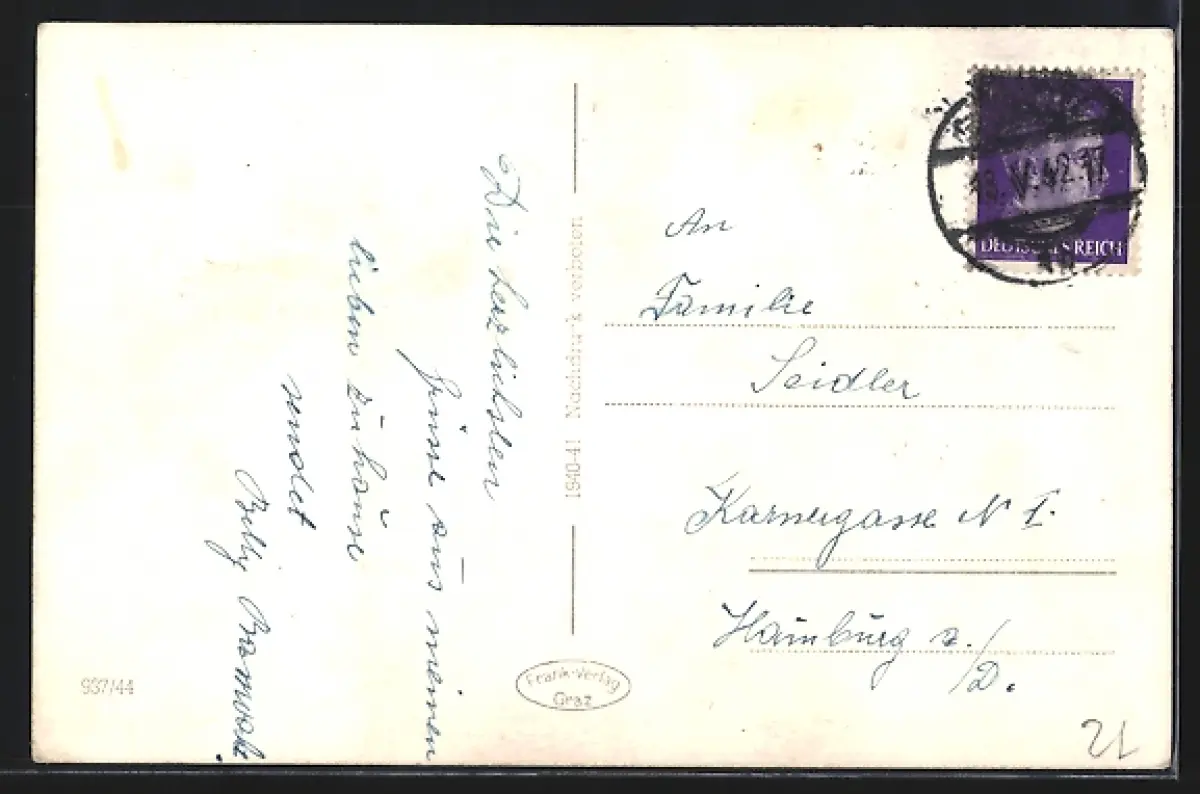 Die herzlichsten
Grüsse aus meinen
lieben zuhause
sendet
1940-41 Nachdruck verboten
Frank-Verlag
Graz
937/44
6
13.V.42.17
DEUTSCHES REICH
An
Familie
Seidler
Karnergasse N I.
Hainburg a./
D.
21